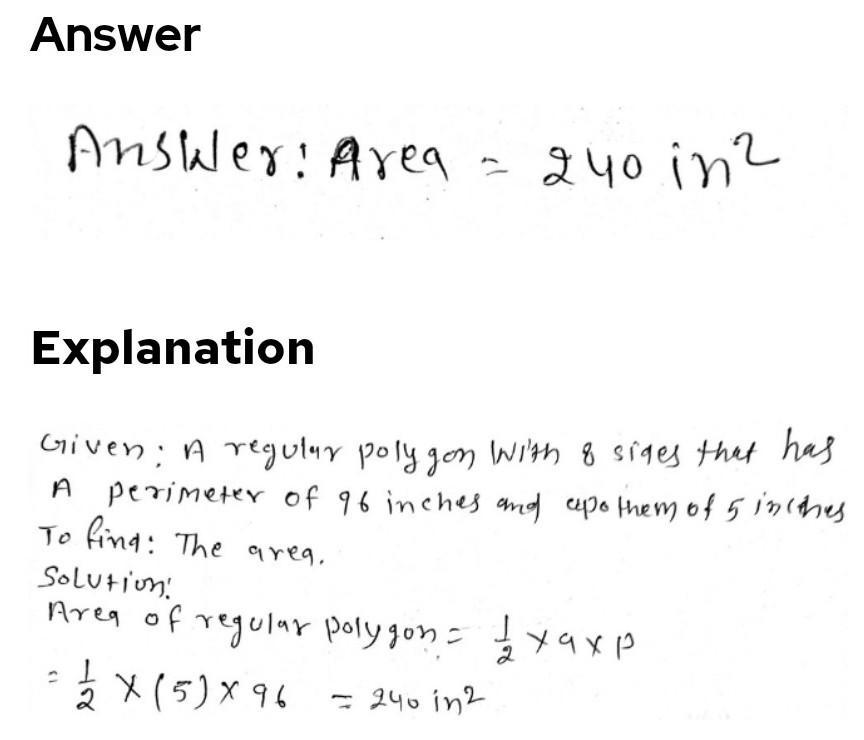 Answer
Answer: Area = 240 in²
Explanation
Given: A regular polygon with 8 sides that has
A perimeter of 96 inches and apothem of 5 inches
To find: The area.
Solution:
Area of regular polygon = 1/2 × a × p
= 1/2 × (5) × 96 = 240 in²